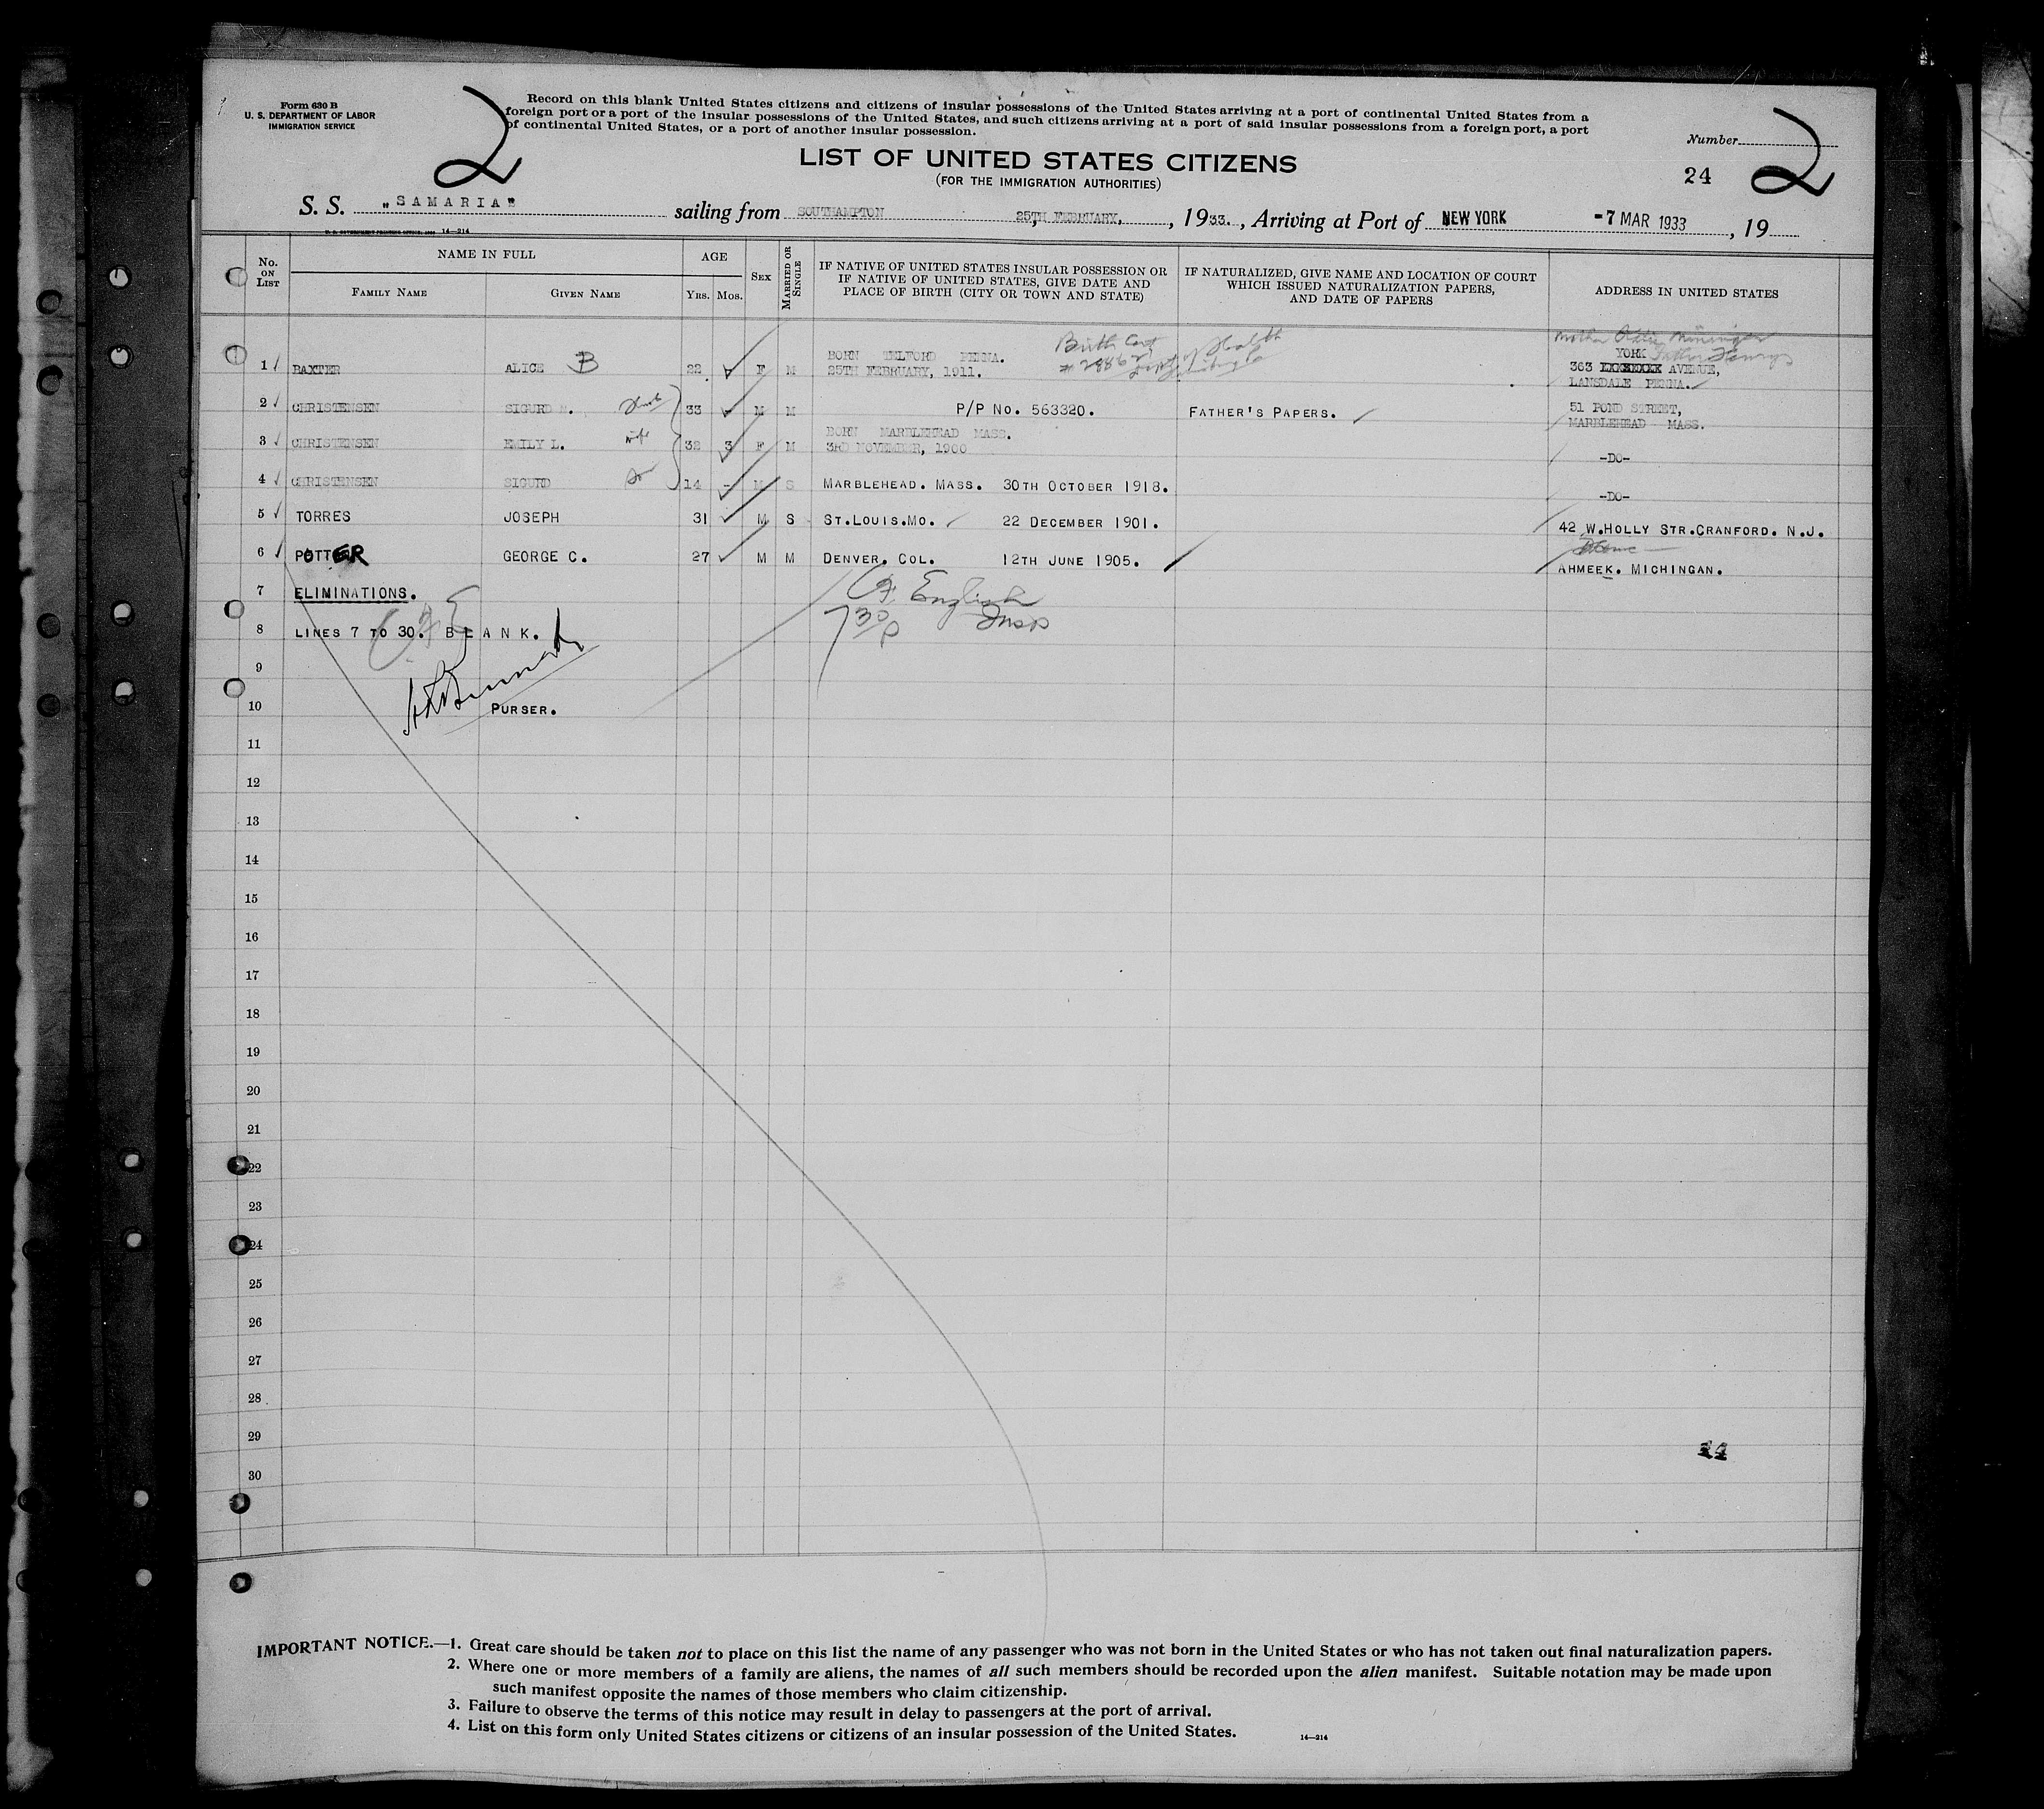 Form 630 B
U. S. DEPARTMENT OF LABOR
IMMIGRATION SERVICE
2
Record on this blank United States citizens and citizens of insular possessions of the United States arriving at a port of continental United States from a
foreign port or a port of the insular possessions of the United States, and such citizens arriving at a port of said insular possessions from a foreign port, a port
of continental United States, or a port of another insular possession.
Number
24 2
LIST OF UNITED STATES CITIZENS
(FOR THE IMMIGRATION AUTHORITIES)
S. S. "SAMARIA" sailing from SOUTHAMPTON 25TH FEBRUARY, , 1933. , Arriving at Port of NEW YORK -7 MAR 1933 , 19
14—214
No. ON LIST
NAME IN FULL
FAMILY NAME GIVEN NAME
AGE
YRS. MOS.
SEX
MARRIED OR SINGLE
IF NATIVE OF UNITED STATES INSULAR POSSESSION OR
IF NATIVE OF UNITED STATES, GIVE DATE AND
PLACE OF BIRTH (CITY OR TOWN AND STATE)
IF NATURALIZED, GIVE NAME AND LOCATION OF COURT
WHICH ISSUED NATURALIZATION PAPERS,
AND DATE OF PAPERS
ADDRESS IN UNITED STATES
Birth Cert of Health
Mother Mininger
BORN TELFORD PENNA. YORK Father Henry
1 BAXTER ALICE B 22 F M 25TH FEBRUARY, 1911. 363 AVENUE,
LANSDALE PENNA.
2 CHRISTENSEN SIGURD M. 33 M M P/P No. 563320. FATHER'S PAPERS. 51 POND STREET,
MARBLEHEAD MASS.
BORN MARBLEHEAD MASS.
3 CHRISTENSEN EMILY L. wife 32 3 F M 3RD NOVEMBER, 1900 -DO-
4 CHRISTENSEN SIGURD 14 - M S MARBLEHEAD. MASS. 30TH OCTOBER 1918. -DO-
5 TORRES JOSEPH 31 M S ST.LOUIS.MO. 22 DECEMBER 1901. 42 W.HOLLY STR.CRANFORD. N.J.
6 POTTER GEORGE C. 27 M M DENVER. COL. 12TH JUNE 1905. AHMEEK. MICHINGAN.
7 ELIMINATIONS.
English
7 30 P Insp
8 LINES 7 TO 30. BLANK.
9
10 PURSER.
11
12
13
14
15
16
17
18
19
20
21
22
23
24
25
26
27
28
29
24
30
IMPORTANT NOTICE.—1. Great care should be taken not to place on this list the name of any passenger who was not born in the United States or who has not taken out final naturalization papers.
2. Where one or more members of a family are aliens, the names of all such members should be recorded upon the alien manifest. Suitable notation may be made upon
such manifest opposite the names of those members who claim citizenship.
3. Failure to observe the terms of this notice may result in delay to passengers at the port of arrival.
4. List on this form only United States citizens or citizens of an insular possession of the United States.
14—214